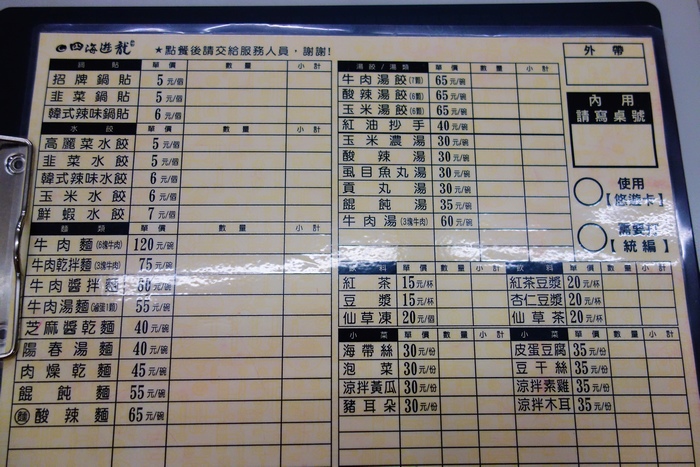 四海遊龍
★點餐後請交給服務人員，謝謝!
鍋貼 單價 數量 小計
招牌鍋貼 5元/個
韭菜鍋貼 5元/個
韓式辣味鍋貼 6元/個
水餃 單價 數量 小計
高麗菜水餃 5元/個
韭菜水餃 5元/個
韓式辣味水餃 6元/個
玉米水餃 6元/個
鮮蝦水餃 7元/個
麵類 單價 數量 小計
牛肉麵(6塊牛肉) 120元/碗
牛肉乾拌麵(3塊牛肉) 75元/碗
牛肉醬拌麵 60元/碗
牛肉湯麵(滷蛋1顆) 55元/碗
芝麻醬乾麵 40元/碗
陽春湯麵 40元/碗
肉燥乾麵 45元/碗
餛飩麵 55元/碗
酸辣麵 65元/碗
湯餃/湯類 單價 數量 小計
牛肉湯餃(7顆) 65元/碗
酸辣湯餃(6顆) 65元/碗
玉米湯餃(6顆) 65元/碗
紅油抄手 40元/碗
玉米濃湯 30元/碗
酸辣湯 30元/碗
虱目魚丸湯 30元/碗
貢丸湯 30元/碗
餛飩湯 35元/碗
牛肉湯(3塊牛肉) 60元/碗
飲料 單價 數量 小計 飲料 單價 數量 小計
紅茶 15元/杯 紅茶豆漿 20元/杯
豆漿 15元/杯 杏仁豆漿 20元/杯
仙草凍 20元/個 仙草茶 20元/杯
小菜 單價 數量 小計 小菜 單價 數量 小計
海帶絲 30元/份 皮蛋豆腐 35元/份
泡菜 30元/份 豆干絲 35元/份
涼拌黃瓜 30元/份 涼拌素雞 35元/份
豬耳朵 30元/份 涼拌木耳 35元/份
外帶
內用
請寫桌號
使用
【悠遊卡】
需要打
【統編】